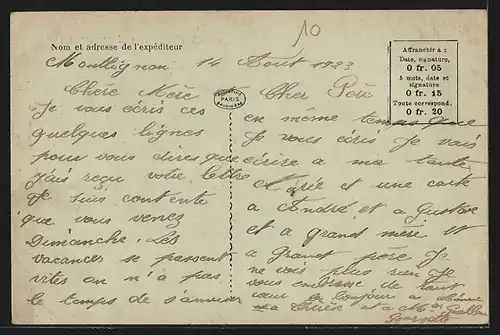 10
Nom et adresse de l'expéditeur
Affranchir a :
Date, signature,
0 fr. 05
5 mots, date et
signature
0 fr. 15
Toute correspond.
0 fr. 20
14 Août 1933
PARIS
Chère Mère
Je vous écris ces
quelques lignes
pour vous dires que
j'ais reçu votre lettre
Je suis contente
que vous venez
Dimanche. Les
vacances se passent
vites on n'a pas
le temps de s'ennuier
Cher Père
en même temps que
Je vous écris Je vais
écrire a ma tante
et une carte
a André et a Gustave
et a grand mère et
a grand père Je
ne vois plus rien Je
vous embrasse de tout
cœur le bonjour a
et a